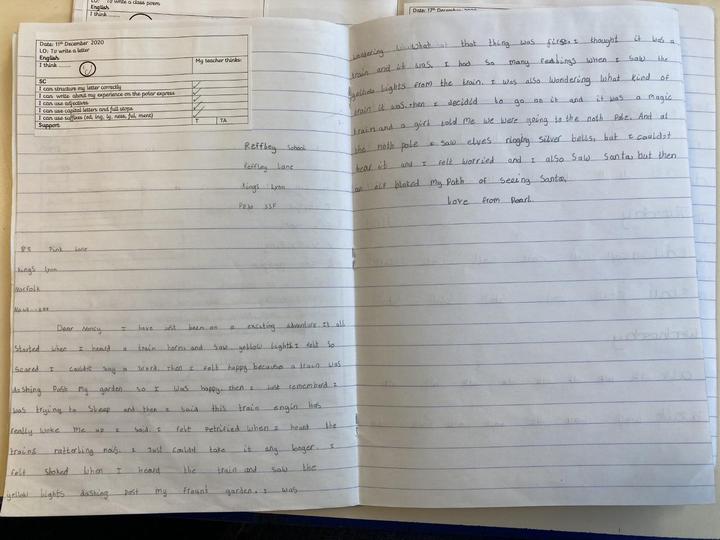 LO: To write a class poem
English
I think
Date: 17th December 2020
Date: 11th December 2020
LO: To write a letter
English
I think ......
My teacher thinks:
SC
I can structure my letter correctly
I can write about my experience on the polar express
I can use adjectives
I can use capital letters and full stops
I can use suffixes (ed, ing, ly, ness, ful, ment)
Support
T
TA
Reffley School
Reffley Lane
Kings Lynn
PE30 3SF
Pink lane
Kings Lynn
Norfolk
Dear Nancy I have just been on a exciting adventure It all
Started when I heard a train horn and saw yellow lights I felt So
Scared I couldt say a word. then I felt happy because a train was
dashing Past My garden so I was happy. then I Just rememberd I
was trying to Sleep and then I said this train engin has
really woke Me up I said. I felt Petrified when I heard the
trains ratterling nois. I Just Couldt take it any longer. I
felt Shoked when I heard the train and Saw the
yellow lights dashing past my fraunt garden. I was
wondering What that thing was first. I thought it was a
train and it was. I had so many fealings when I saw the
yellow lights from the train. I was also Wondering What kind of
train it was. then I decided to go on it and it was a magic
train and a girl told Me we were going to the noth Pole. And at
the noth pole I saw elves ringing Silver bells, but I couldt
hear it and I felt worried and I also Saw Santa, but then
an elf bloked My Path of Seeing Santa.
Love from Pearl.